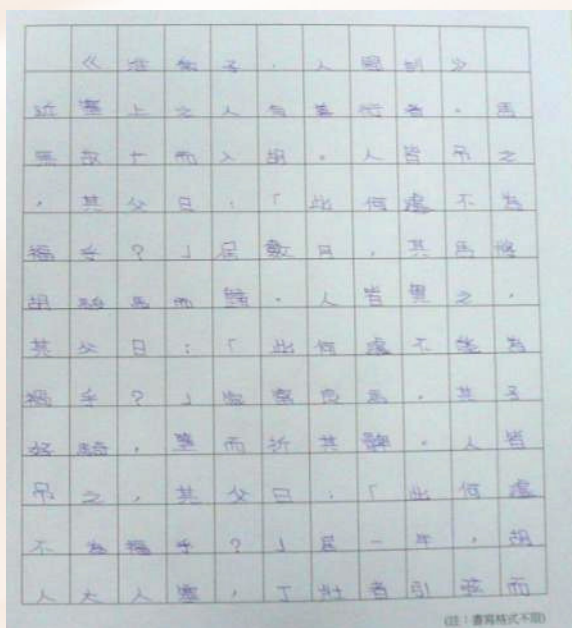 《淮南子·人間訓》
近塞上之人有善術者,馬
無故亡而入胡。人皆弔之
,其父曰:「此何遽不為
福乎?」居數月,其馬將
胡駿馬而歸。人皆賀之,
其父曰:「此何遽不能為
禍乎?」家富良馬,其子
好騎,墮而折其髀。人皆
弔之,其父曰:「此何遽
不為福乎?」居一年,胡
人大入塞,丁壯者引弦而
(註:書寫格式不限)